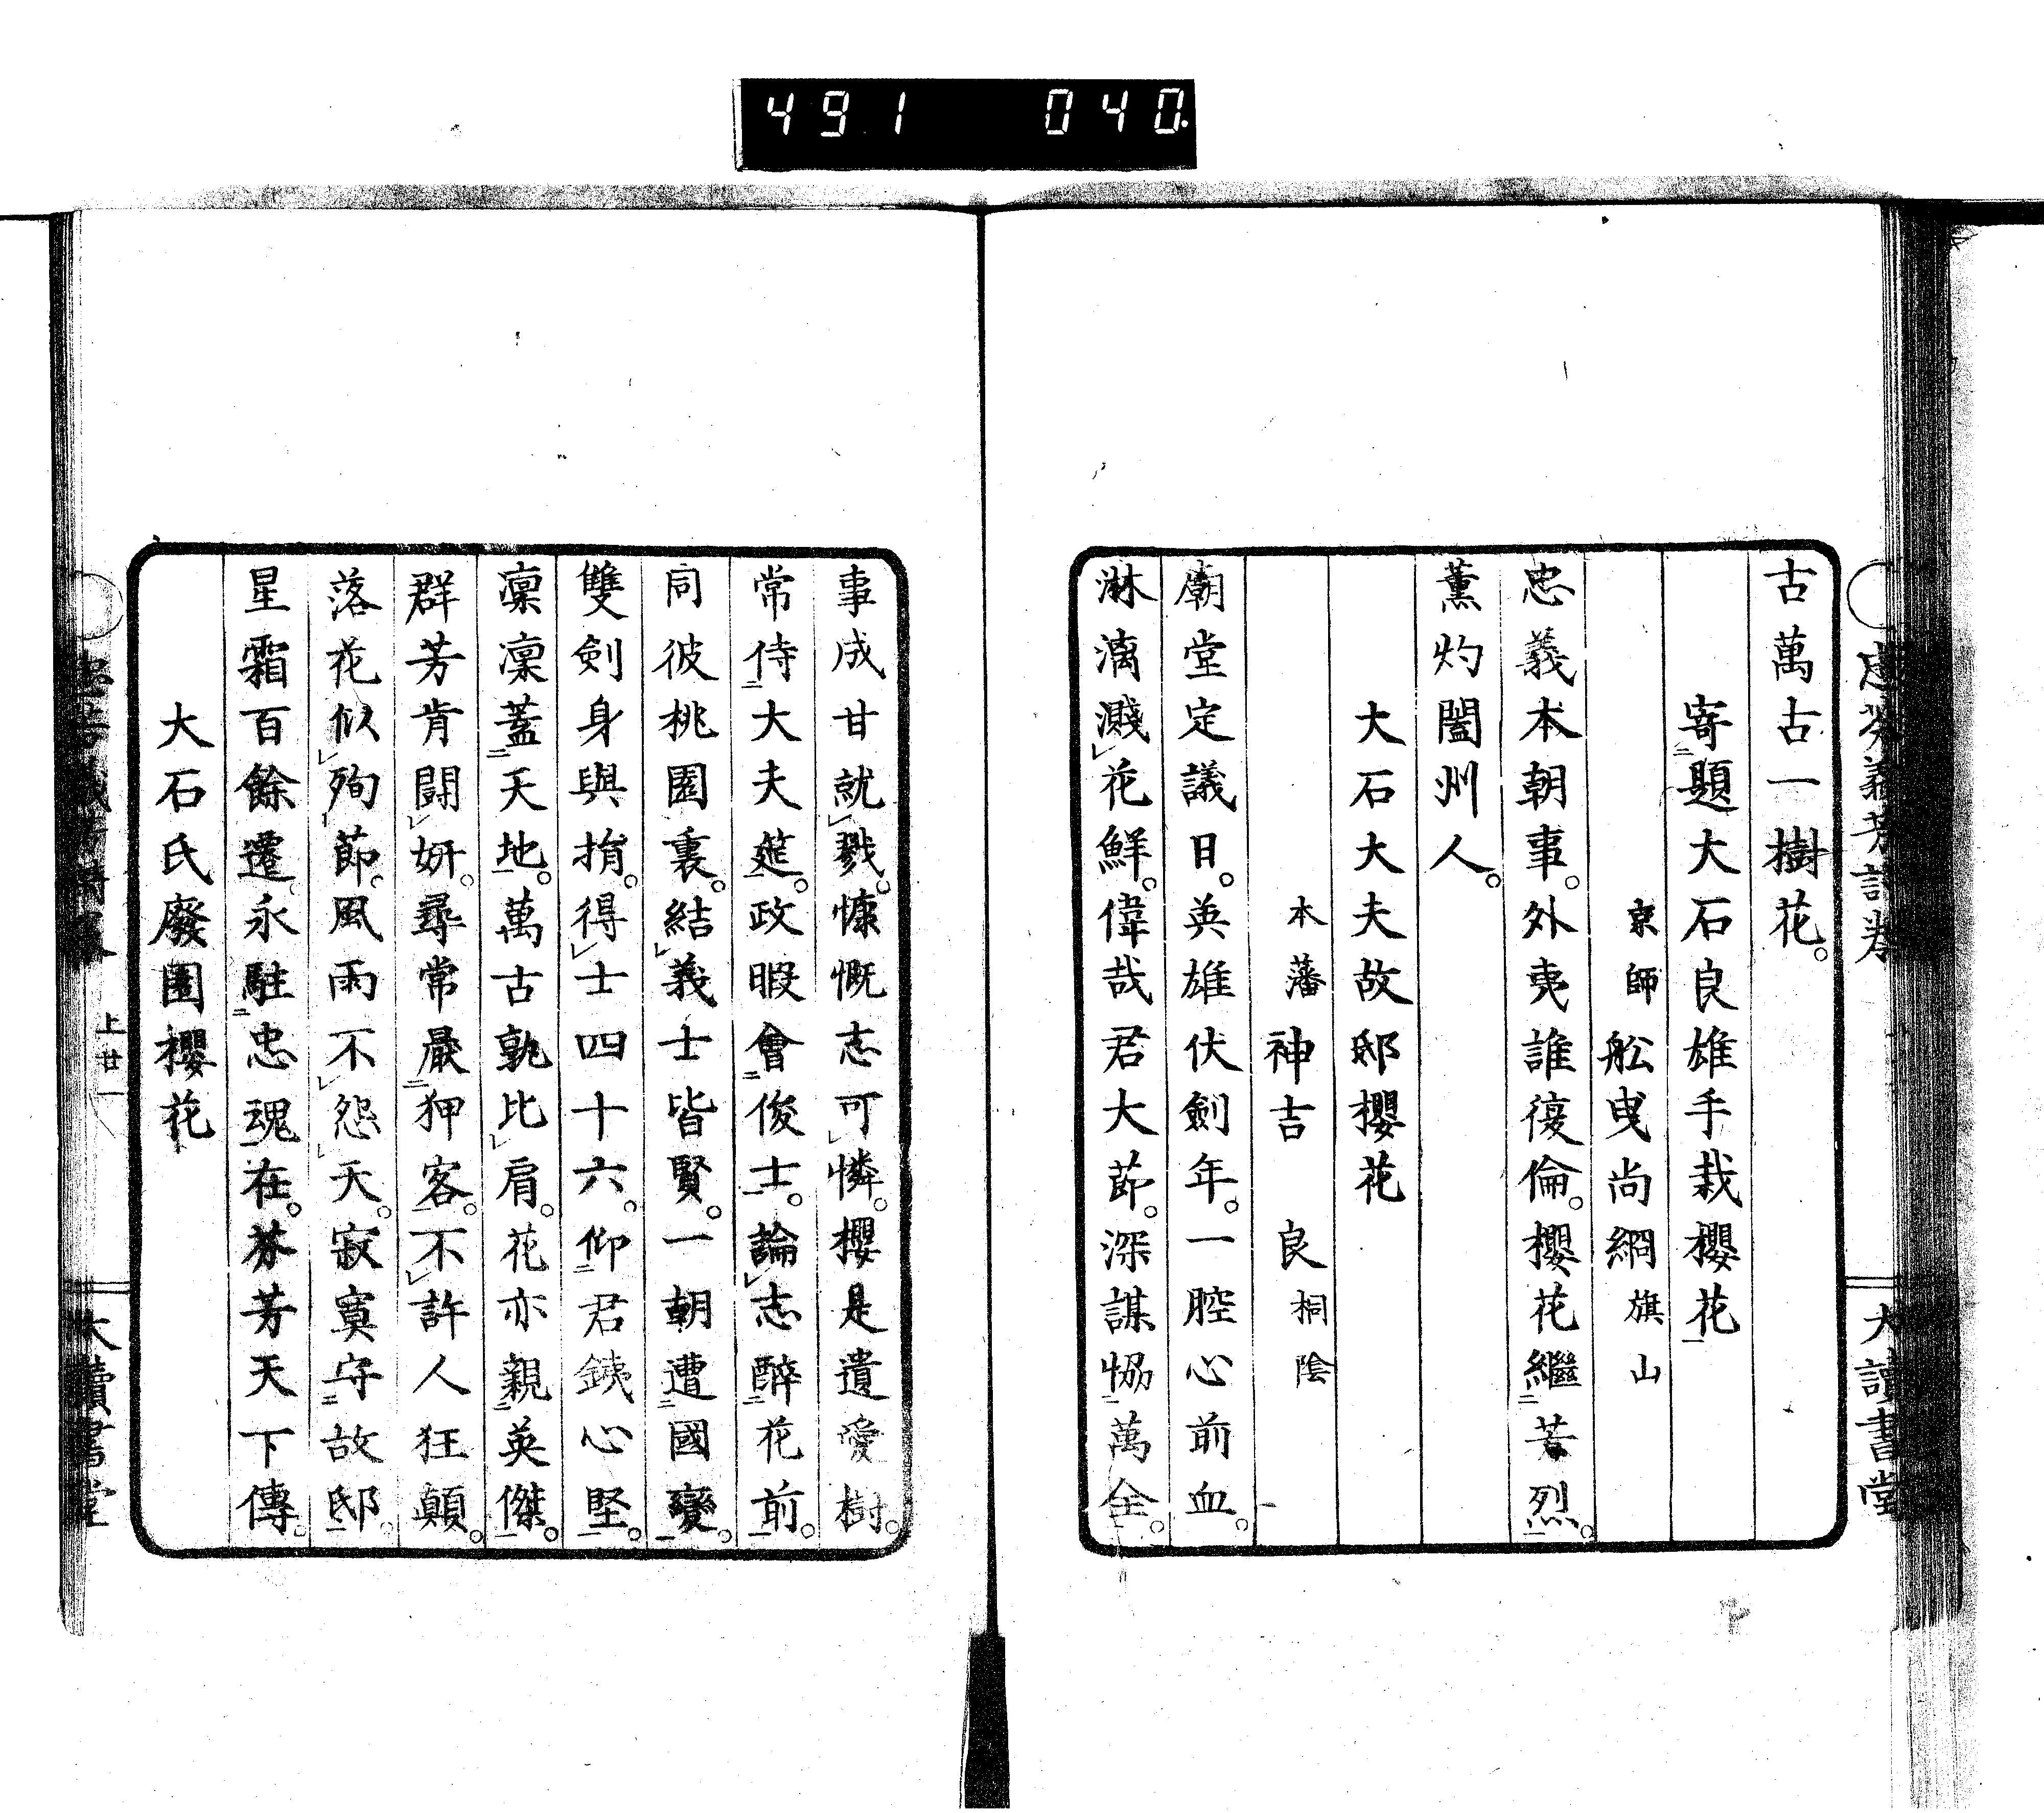 491 040.
古萬古一樹花。
寄題大石良雄手栽櫻花
京師 舩曳尚綱 旗山
忠義本朝事。外夷誰復倫。櫻花繼芳烈。
薫灼闔州人。
大石大夫故邸櫻花
本藩 神吉 良 桐陰
廟堂定議日。英雄伏劍年。一腔心前血。
淋漓濺花鮮。偉哉君大莭。深謀恊萬全。
事成甘就戮。慷慨志可憐。櫻是遺愛樹。
常侍大夫筵。政暇會俊士。論志醉花前。
同彼桃園裏。結義士皆賢。一朝遭國變。
雙劍身與捐。得士四十六。仰君銕心堅。
凜凜蓋天地。萬古孰比肩。花亦親英傑。
群芳肯鬪妍。尋常嚴狎客。不許人狂顛。
落花似殉莭。風雨不怨天。寂寞守故邸。
星霜百餘遷。永駐忠魂在。芬芳天下傳。
大石氏廢園櫻花
上廿一
大讀書堂